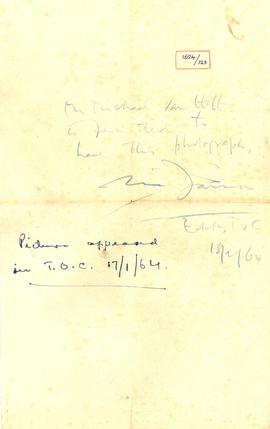 1604/123
Mr Michael Van
is permitted to
have this photograph.
Editor, T.O.C
Picture appeared
in T.O.C. 17/1/64.